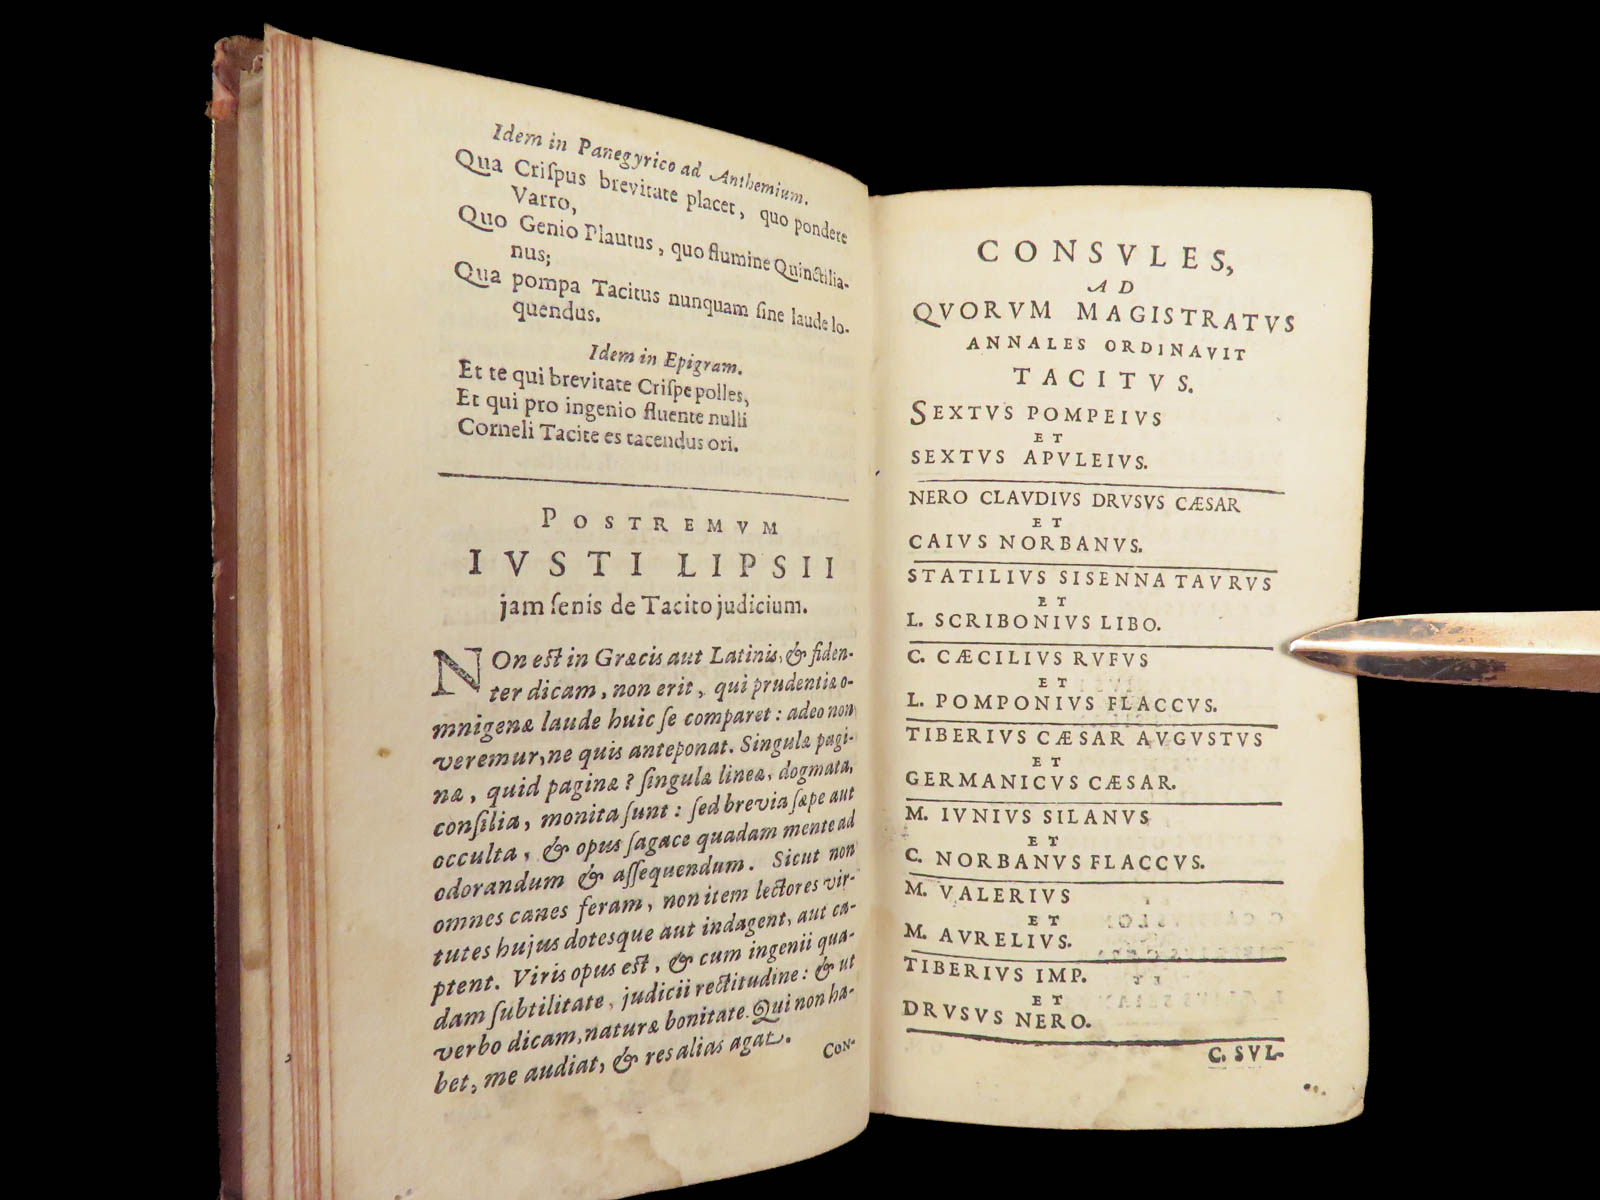 Idem in Panegyrico ad Anthemium.
Qua Criſpus brevitate placet, quo pondere
Varro,
Quo Genio Plautus, quo flumine Quinctilia-
nus;
Qua pompa Tacitus nunquam ſine laude lo-
quendus.
Idem in Epigram.
Et te qui brevitate Criſpe polles,
Et qui pro ingenio fluente nulli
Corneli Tacite es tacendus ori.
POSTREMVM
IVSTI LIPSII
jam ſenis de Tacito judicium.
NOn eſt in Græcis aut Latinis, & fiden-
ter dicam, non erit, qui prudentiæ o-
mnigenæ laude huic ſe comparet: adeo non
veremur, ne quis anteponat. Singulæ pagi-
næ, quid paginæ? ſingulæ lineæ, dogmata,
conſilia, monita ſunt: ſed brevia ſæpe aut
occulta, & opus ſagace quadam mente ad
odorandum & aſſequendum. Sicut non
omnes canes feram, non item lectores vir-
tutes hujus dotesque aut indagent, aut ca-
ptent. Viris opus eſt, & cum ingenii qua-
dam ſubtilitate, judicii rectitudine: & ut
verbo dicam, naturæ bonitate. Qui non ha-
bet, me audiat, & res alias agat.
CON-
CONSVLES,
AD
QVORVM MAGISTRATVS
ANNALES ORDINAVIT
TACITVS.
SEXTVS POMPEIVS
ET
SEXTVS APVLEIVS.
NERO CLAVDIVS DRVSVS CÆSAR
ET
CAIVS NORBANVS.
STATILIVS SISENNA TAVRVS
ET
L. SCRIBONIVS LIBO.
C. CÆCILIVS RVFVS
ET
L. POMPONIVS FLACCVS.
TIBERIVS CÆSAR AVGVSTVS
ET
GERMANICVS CÆSAR.
M. IVNIVS SILANVS
ET
C. NORBANVS FLACCVS.
M. VALERIVS
ET
M. AVRELIVS.
TIBERIVS IMP.
ET
DRVSVS NERO.
C. SVL-